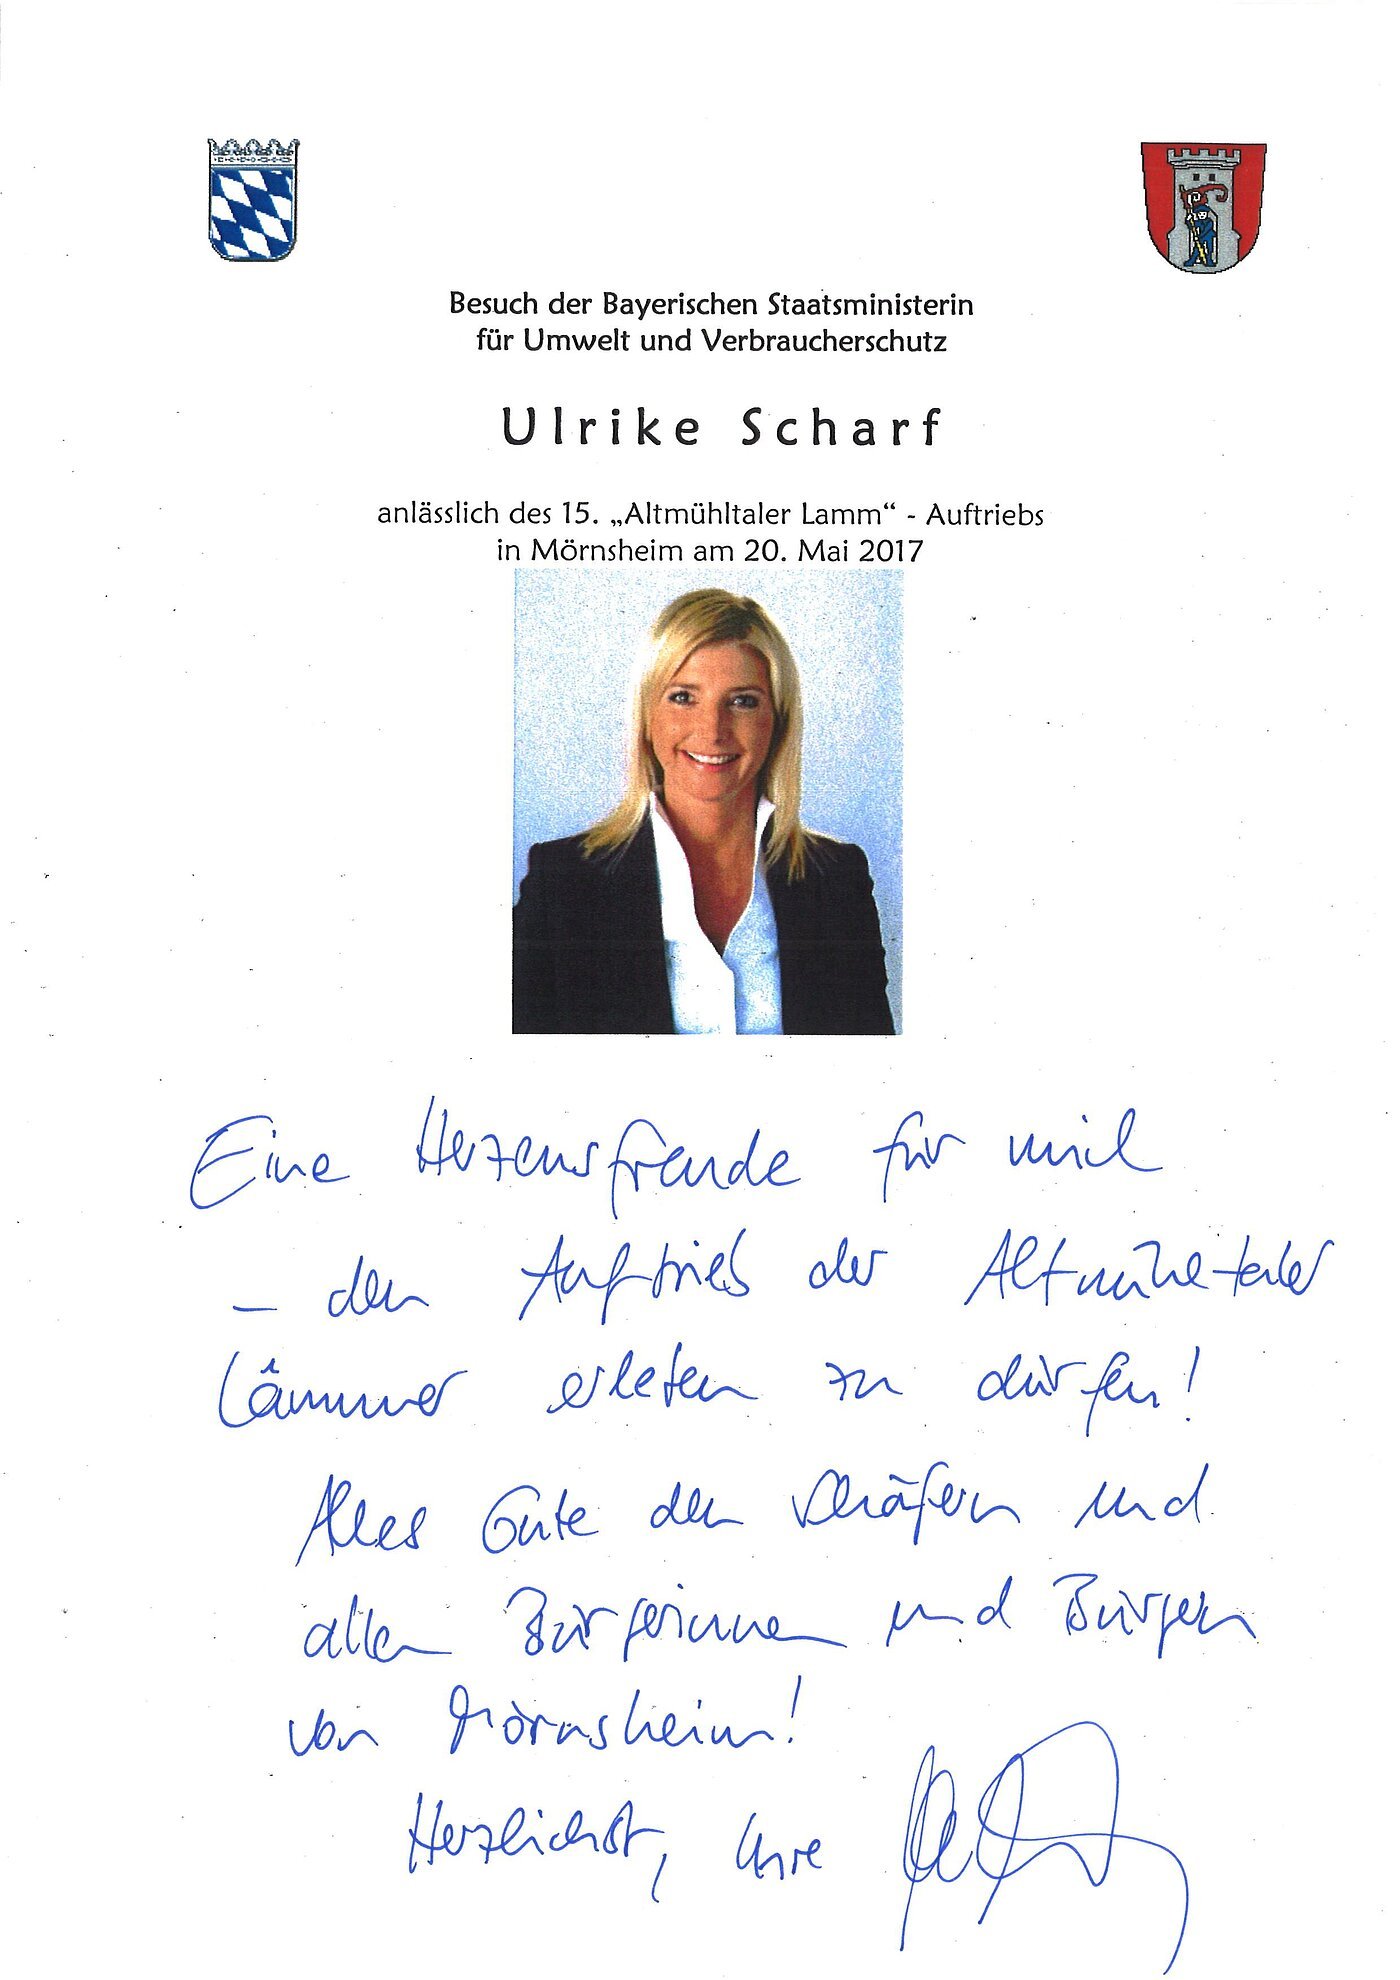 Besuch der Bayerischen Staatsministerin
für Umwelt und Verbraucherschutz
Ulrike Scharf
anlässlich des 15. „Altmühltaler Lamm“ - Auftriebs
in Mörnsheim am 20. Mai 2017
Eine Herzensfreude für mich
– den Auftrieb der Altmühltaler
Lämmer erleben zu dürfen!
Alles Gute den Schäfern und
allen Bürgerinnen und Bürgern
von Mörnsheim!
Herzlichst, Ihre